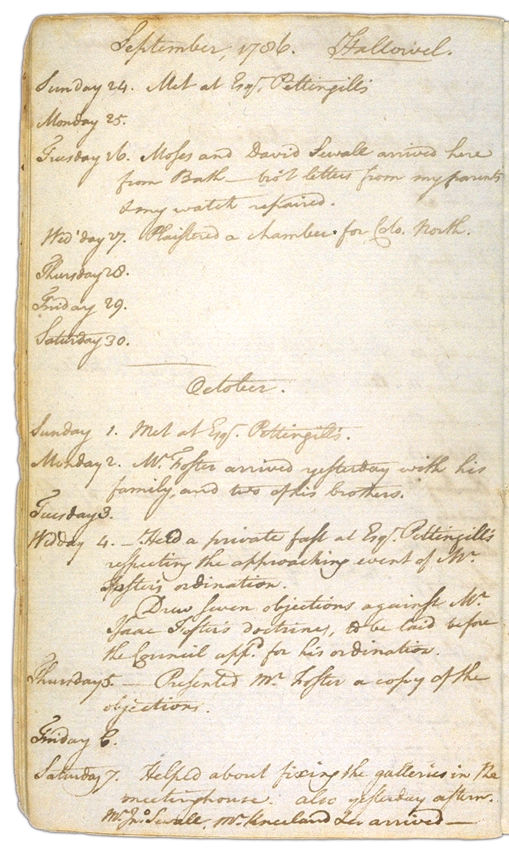 September, 1786. Hallowel.
Sunday 24. Met at Esqr. Pettingill's
Monday 25.
Tuesday 26. Moses and David Sewall arrived here
from Bath — bro't letters from my parents
& my watch repaired.
Wed'day 27. Plaistered a chamber for Colo. North.
Thursday 28.
Friday 29.
Saturday 30.
October.
Sunday 1. Met at Esqr. Pettingill's.
Monday 2. Mr. Foster arrived yesterday with his
family, and two of his brothers.
Tuesday 3.
Wedday 4. — Held a private fast at Esqr. Pettingill's
respecting the approaching event of Mr.
Foster's ordination.
Draw seven objections against Mr.
Isaac Foster's doctrines, to be laid before
the Council appd. for his ordination.
Thursday 5. — Presented Mr. Foster a copy of the
objections.
Friday 6.
Saturday 7. Helped about fixing the galleries in the
meetinghouse. also yesterday aftern.
Mr. Jno. Sewall, Mr. Kneeland &c arrived —